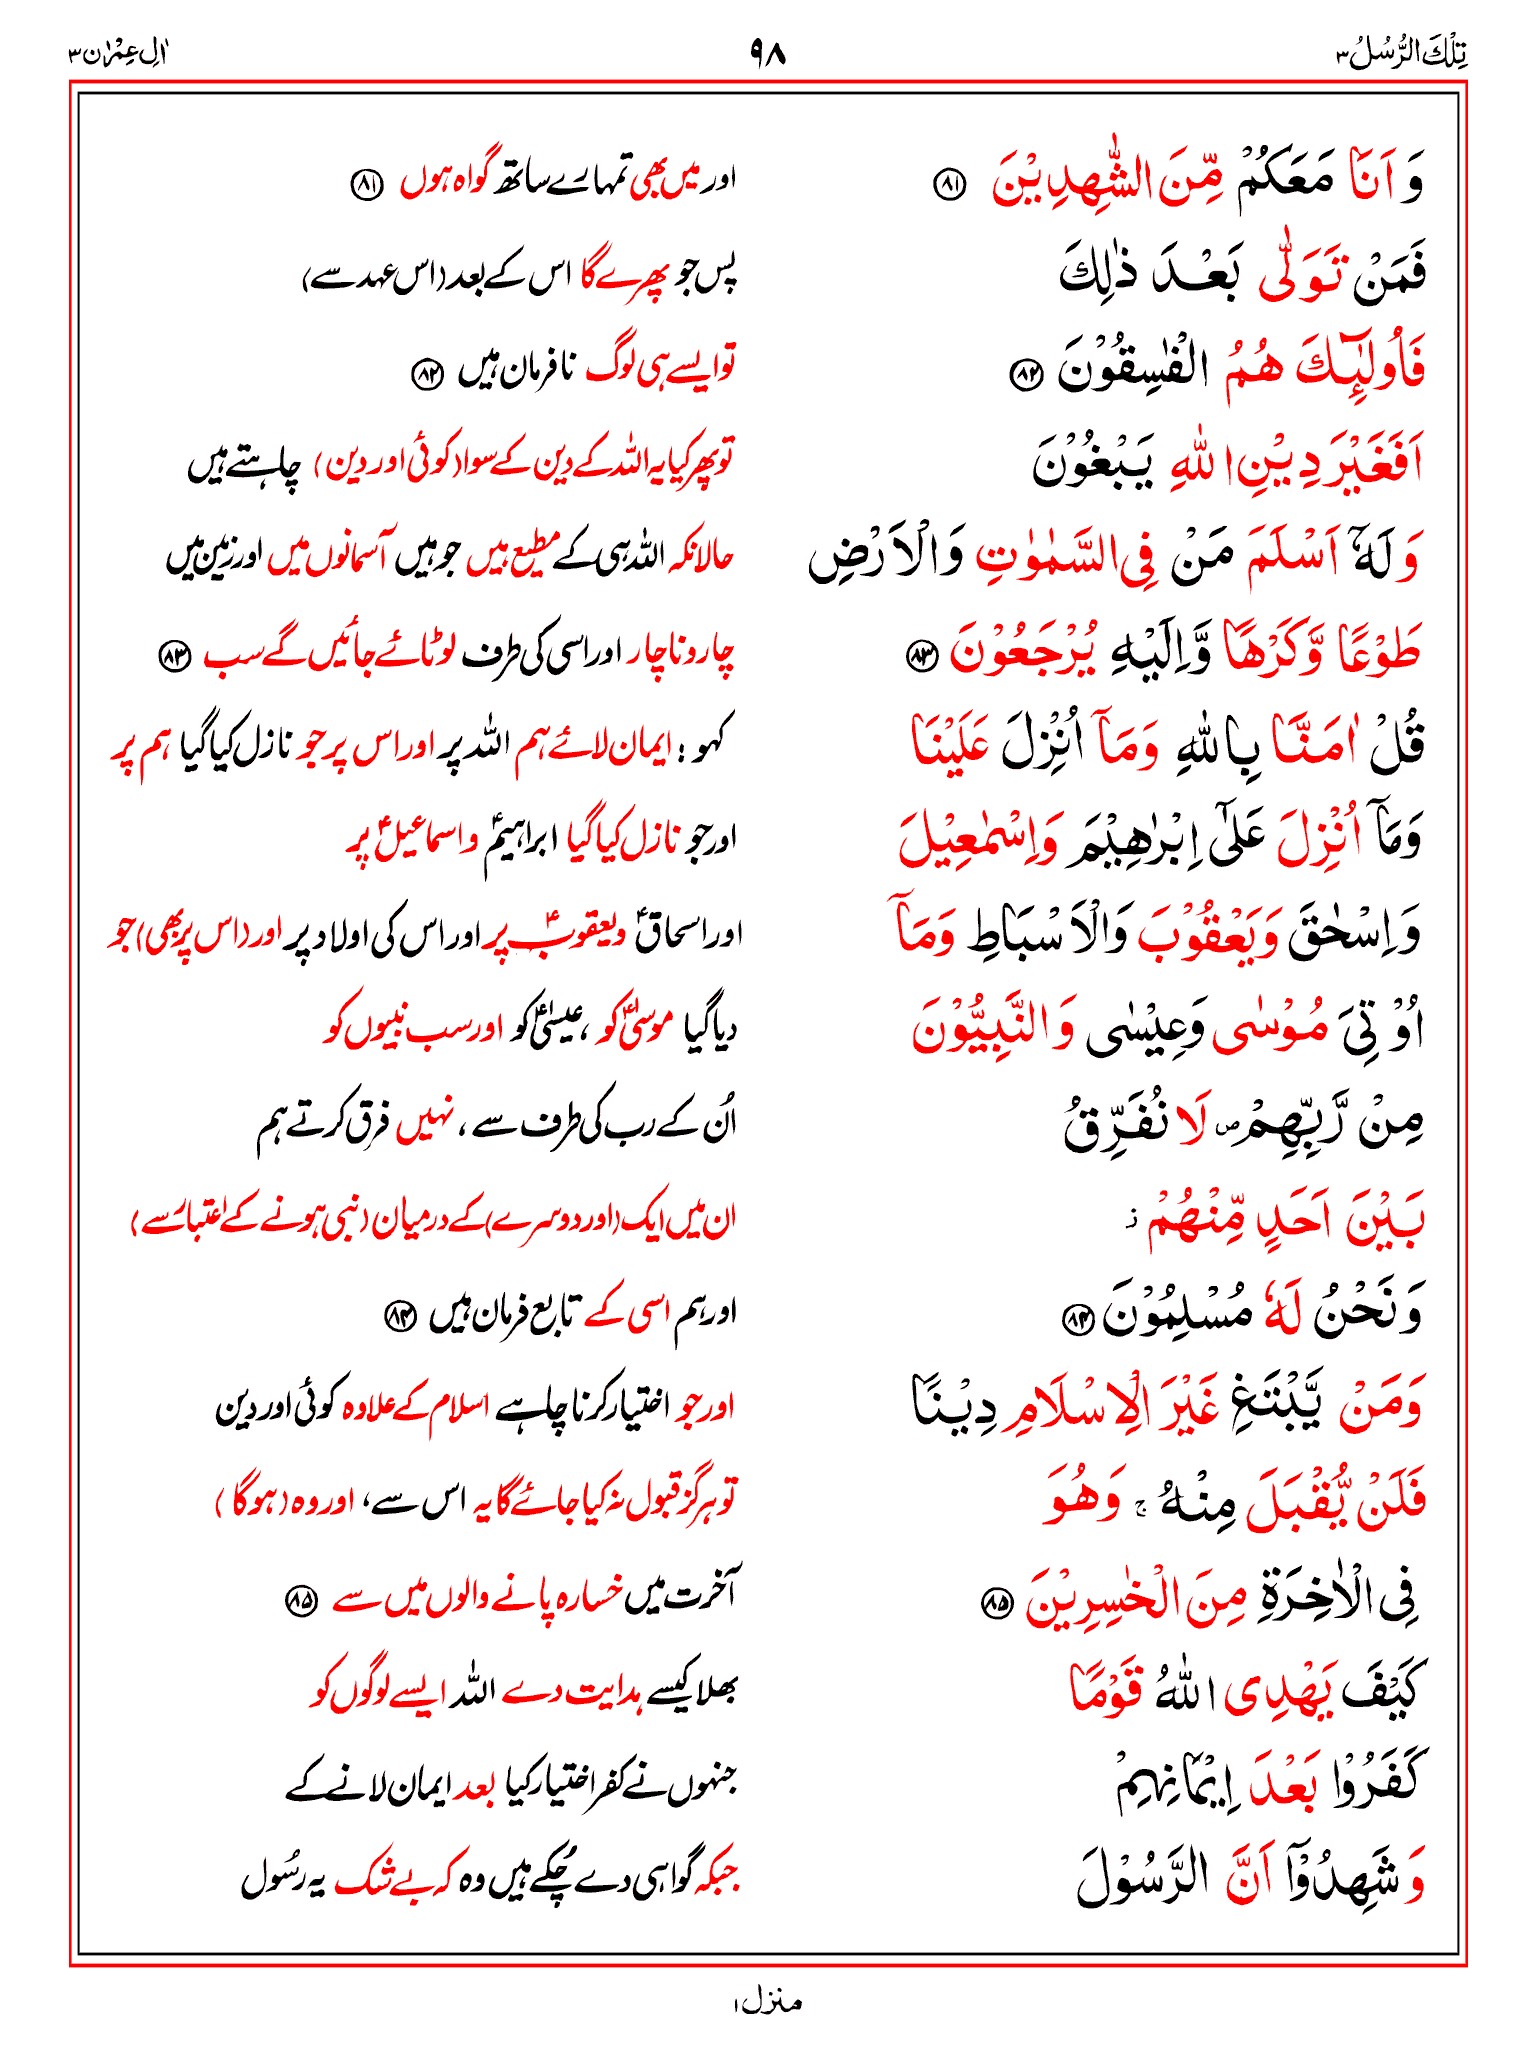 تِلْكَ الرُّسُلُ ۳
۹۸
اٰلِ عِمْرٰن ۳
وَ اَنَا مَعَكُمْ مِّنَ الشّٰهِدِيْنَ ﴿۸۱﴾
اور میں بھی تمہارے ساتھ گواہ ہوں ﴿۸۱﴾
فَمَنْ تَوَلّٰى بَعْدَ ذٰلِكَ
پس جو پھرے گا اس کے بعد (اس عہد سے)
فَاُولٰٓئِكَ هُمُ الْفٰسِقُوْنَ ﴿۸۲﴾
تو ایسے ہی لوگ نافرمان ہیں ﴿۸۲﴾
اَفَغَيْرَ دِيْنِ اللّٰهِ يَبْغُوْنَ
تو پھر کیا یہ اللہ کے دین کے سوا (کوئی اور دین) چاہتے ہیں
وَ لَهٗٓ اَسْلَمَ مَنْ فِى السَّمٰوٰتِ وَالْاَرْضِ
حالانکہ اللہ ہی کے مطیع ہیں جو ہیں آسمانوں میں اور زمین میں
طَوْعًا وَّكَرْهًا وَّاِلَيْهِ يُرْجَعُوْنَ ﴿۸۳﴾
چار و ناچار اور اسی کی طرف لوٹائے جائیں گے سب ﴿۸۳﴾
قُلْ اٰمَنَّا بِاللّٰهِ وَمَآ اُنْزِلَ عَلَيْنَا
کہو : ایمان لائے ہم اللہ پر اور اس پر جو نازل کیا گیا ہم پر
وَمَآ اُنْزِلَ عَلٰٓى اِبْرٰهِيْمَ وَاِسْمٰعِيْلَ
اور جو نازل کیا گیا ابراہیمؑ و اسماعیلؑ پر
وَاِسْحٰقَ وَيَعْقُوْبَ وَالْاَسْبَاطِ وَمَآ
اور اسحاقؑ و یعقوبؑ پر اور اس کی اولاد پر اور (اس پر بھی) جو
اُوْتِىَ مُوْسٰى وَعِيْسٰى وَالنَّبِيُّوْنَ
دیا گیا موسیٰؑ کو ، عیسیٰؑ کو اور سب نبیوں کو
مِنْ رَّبِّهِمْ ص لَا نُفَرِّقُ
اُن کے رب کی طرف سے ، نہیں فرق کرتے ہم
بَيْنَ اَحَدٍ مِّنْهُمْ ز
ان میں ایک (اور دوسرے) کے درمیان (نبی ہونے کے اعتبار سے)
وَنَحْنُ لَهٗ مُسْلِمُوْنَ ﴿۸۴﴾
اور ہم اسی کے تابع فرمان ہیں ﴿۸۴﴾
وَمَنْ يَّبْتَغِ غَيْرَ الْاِسْلَامِ دِيْنًا
اور جو اختیار کرنا چاہے اسلام کے علاوہ کوئی اور دین
فَلَنْ يُّقْبَلَ مِنْهُ ج وَهُوَ
تو ہرگز قبول نہ کیا جائے گا یہ اس سے، اور وہ (ہوگا)
فِى الْاٰخِرَةِ مِنَ الْخٰسِرِيْنَ ﴿۸۵﴾
آخرت میں خسارہ پانے والوں میں سے ﴿۸۵﴾
كَيْفَ يَهْدِى اللّٰهُ قَوْمًا
بھلا کیسے ہدایت دے اللہ ایسے لوگوں کو
كَفَرُوْا بَعْدَ اِيْمَانِهِمْ
جنہوں نے کفر اختیار کیا بعد ایمان لانے کے
وَ شَهِدُوْٓا اَنَّ الرَّسُوْلَ
جبکہ گواہی دے چُکے ہیں وہ کہ بے شک یہ رسُول
منزل ۱